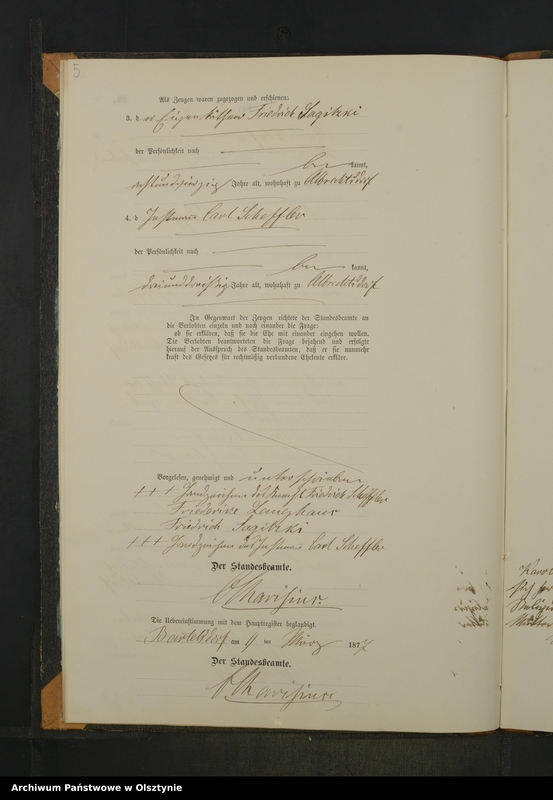 5
Als Zeugen waren zugezogen und erschienen:
3. der Eigenkäthner Friedrich Sagitzki
der Persönlichkeit nach
be kannt,
achtundvierzig Jahre alt, wohnhaft zu Albrechtsdorf
4. der Instmann Carl Scheffler
der Persönlichkeit nach
be kannt,
dreiunddreißig Jahre alt, wohnhaft zu Albrechtsdorf
In Gegenwart der Zeugen richtete der Standesbeamte an
die Verlobten einzeln und nach einander die Frage:
ob sie erklären, daß sie die Ehe mit einander eingehen wollen.
Die Verlobten beantworteten die Frage bejahend und erfolgte
hierauf der Ausspruch des Standesbeamten, daß er sie nunmehr
kraft des Gesetzes für rechtmäßig verbundene Eheleute erkläre.
Vorgelesen, genehmigt und unterschrieben
+ + + Handzeichen des Friedrich Scheffler
Friederike
Friedrich Sagitzki
+++ Handzeichen des Instmann Carl Scheffler
Der Standesbeamte.
Die Uebereinstimmung mit dem Hauptregister beglaubigt.
am 9 ten März 1877
Der Standesbeamte.
Archiwum Państwowe w Olsztynie